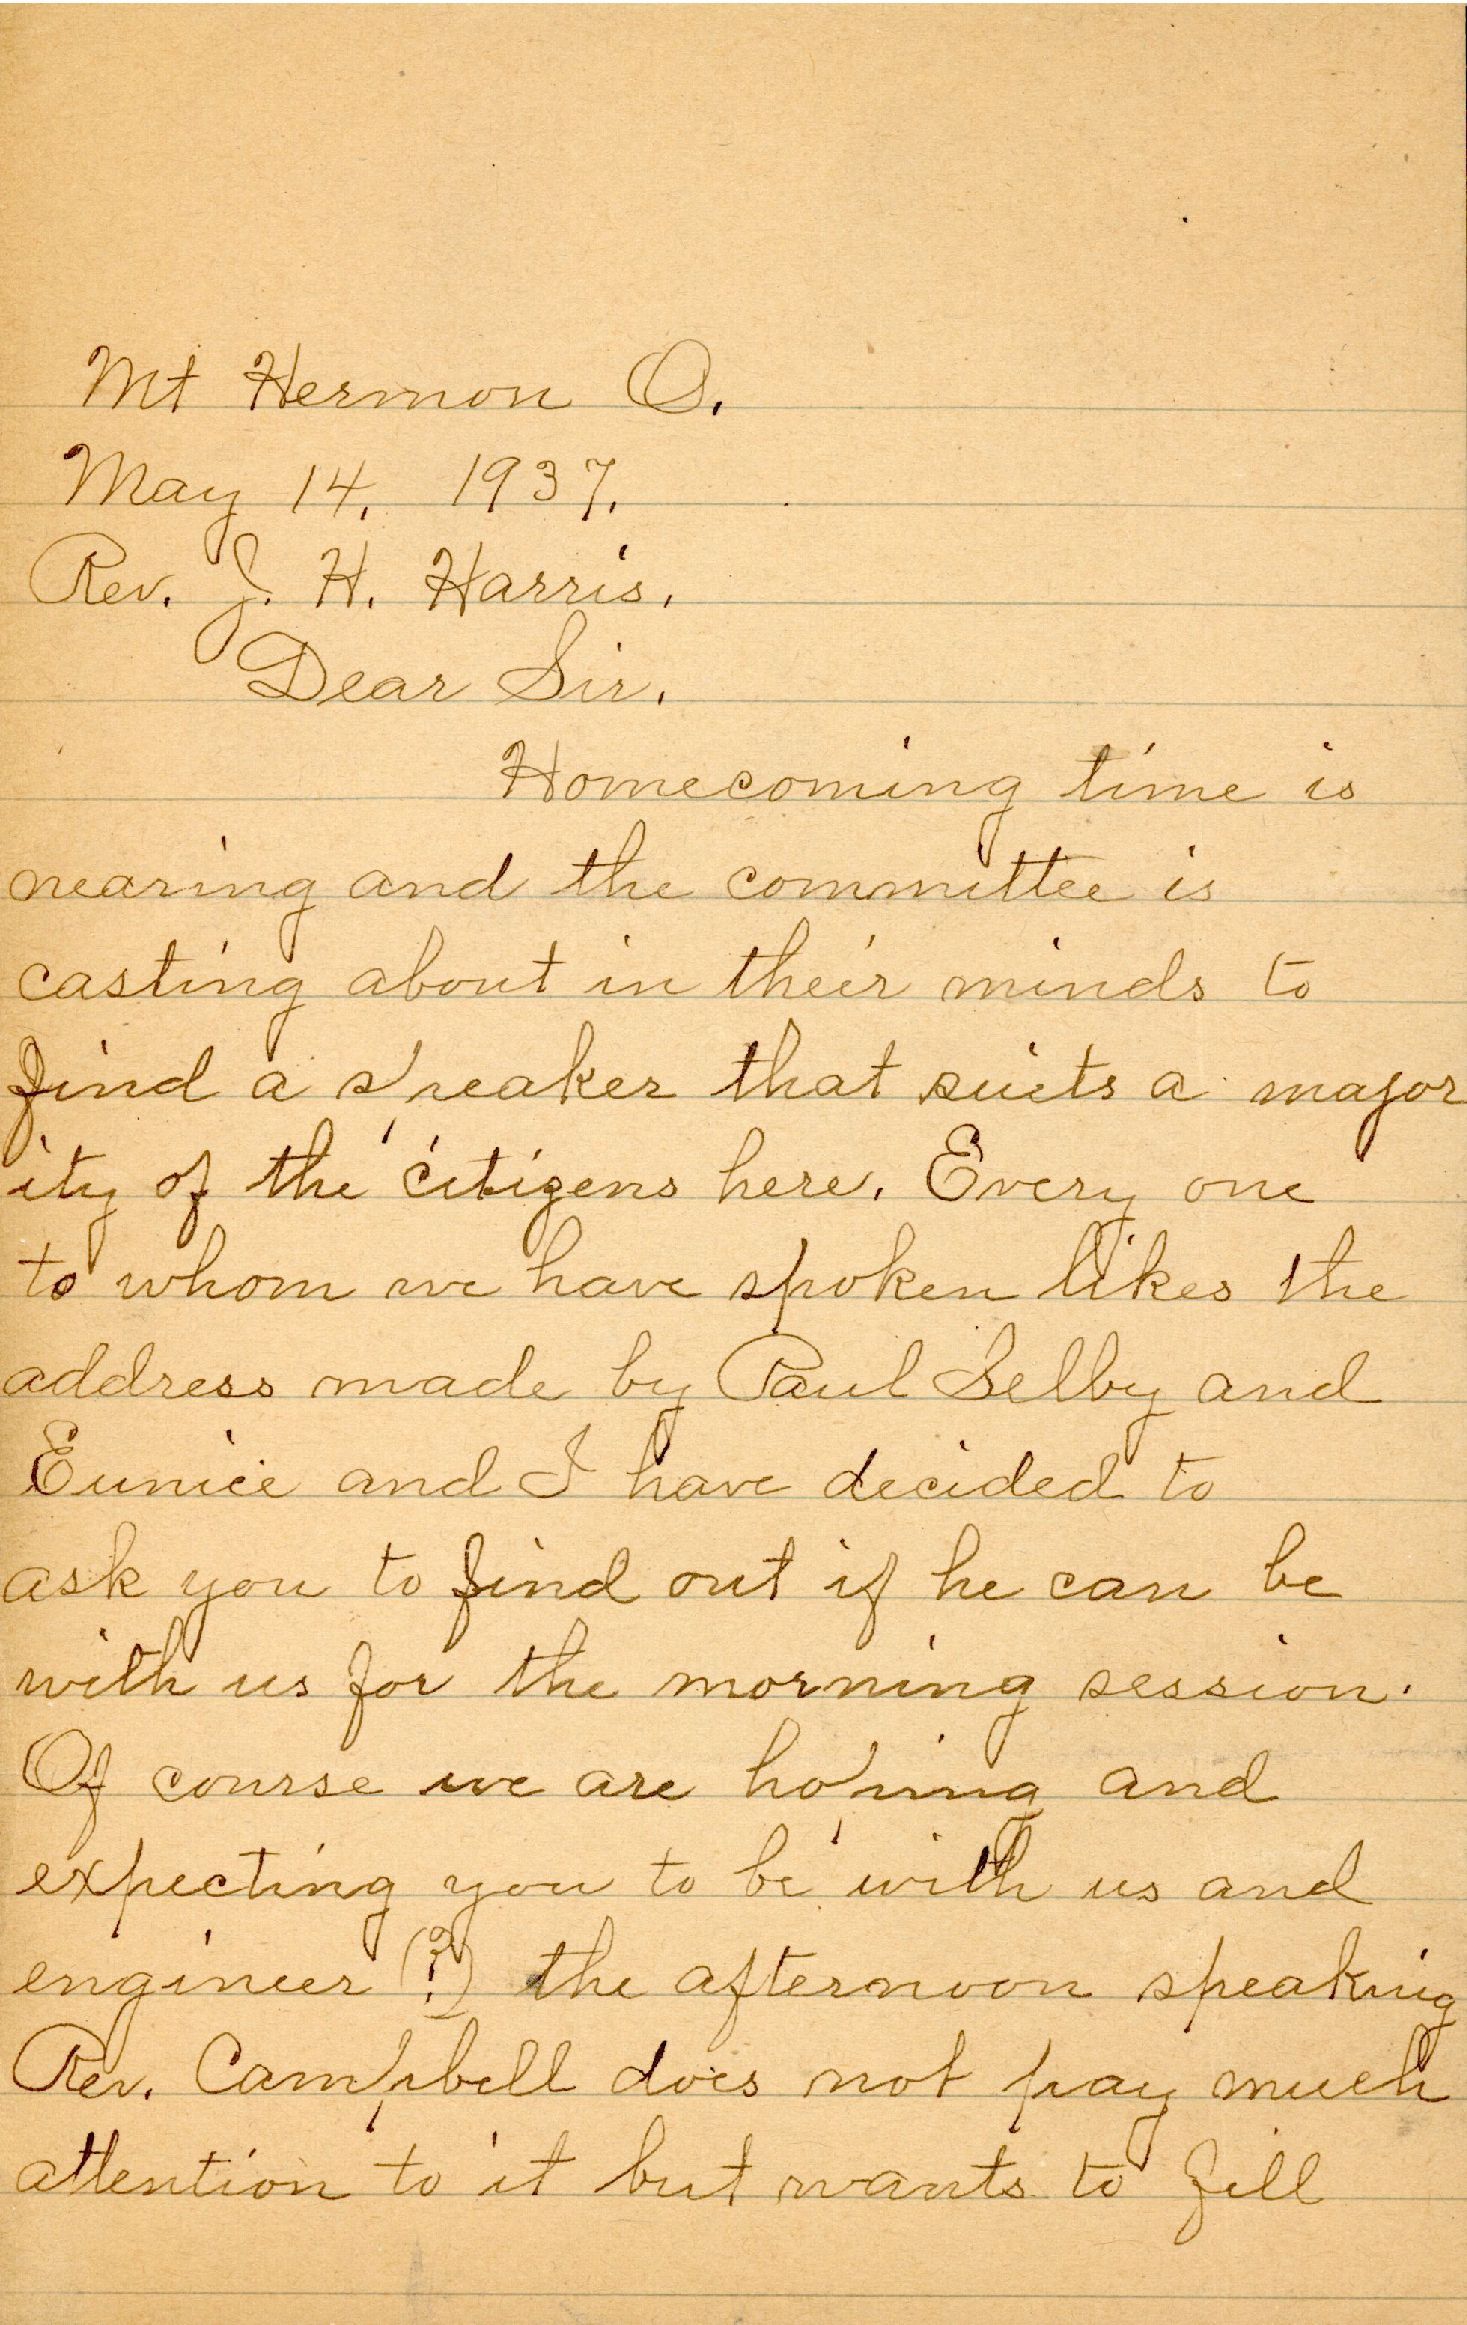 Mt Hermon O.
May 14, 1937.
Rev. J. H. Harris,
Dear Sir.
Homecoming time is
nearing and the committee is
casting about in their minds to
find a speaker that suits a major
ity of the citizens here. Every one
to whom we have spoken likes the
address made by Paul Selby and
Eunice and I have decided to
ask you to find out if he can be
with us for the morning session.
Of course we are hoping and
expecting you to be with us and
engineer (?) the afternoon speaking
Rev. Campbell does not pay much
attention to it but wants to fill